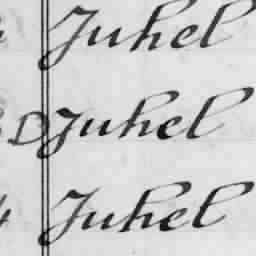 Juhel
D Juhel
4 Juhel